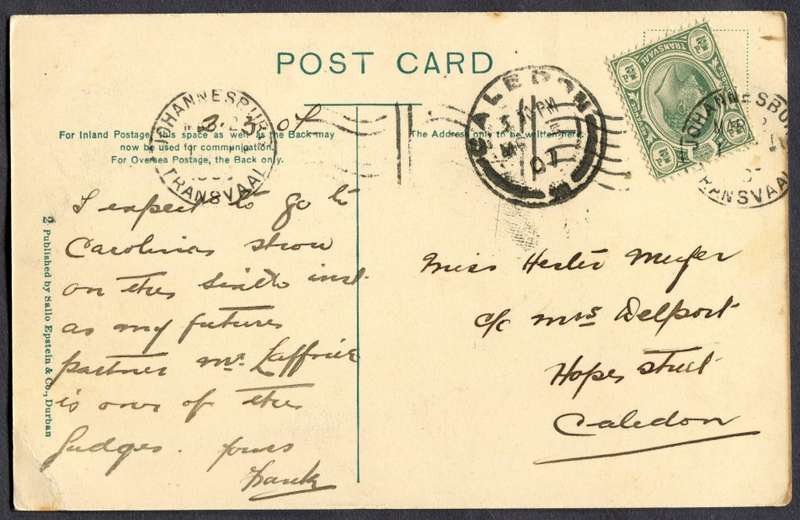 POST CARD
For Inland Postage, this space as well as the Back may
now be used for communication.
For Oversea Postage, the Back only.
The Address only to be written here.
JOHANNESBURG
TRANSVAAL
CALEDON
PM
07
TRANSVAAL
JOHANNESBURG
TRANSVAAL
I expect to go to
Carolina show
on the sixth inst.
as my future
partner Mr.
is one of the
Judges. yours
Frank
Miss Hester Meyer
c/o Mrs Delport
Hope street
Caledon
2 Published by Sallo Epstein & Co., Durban